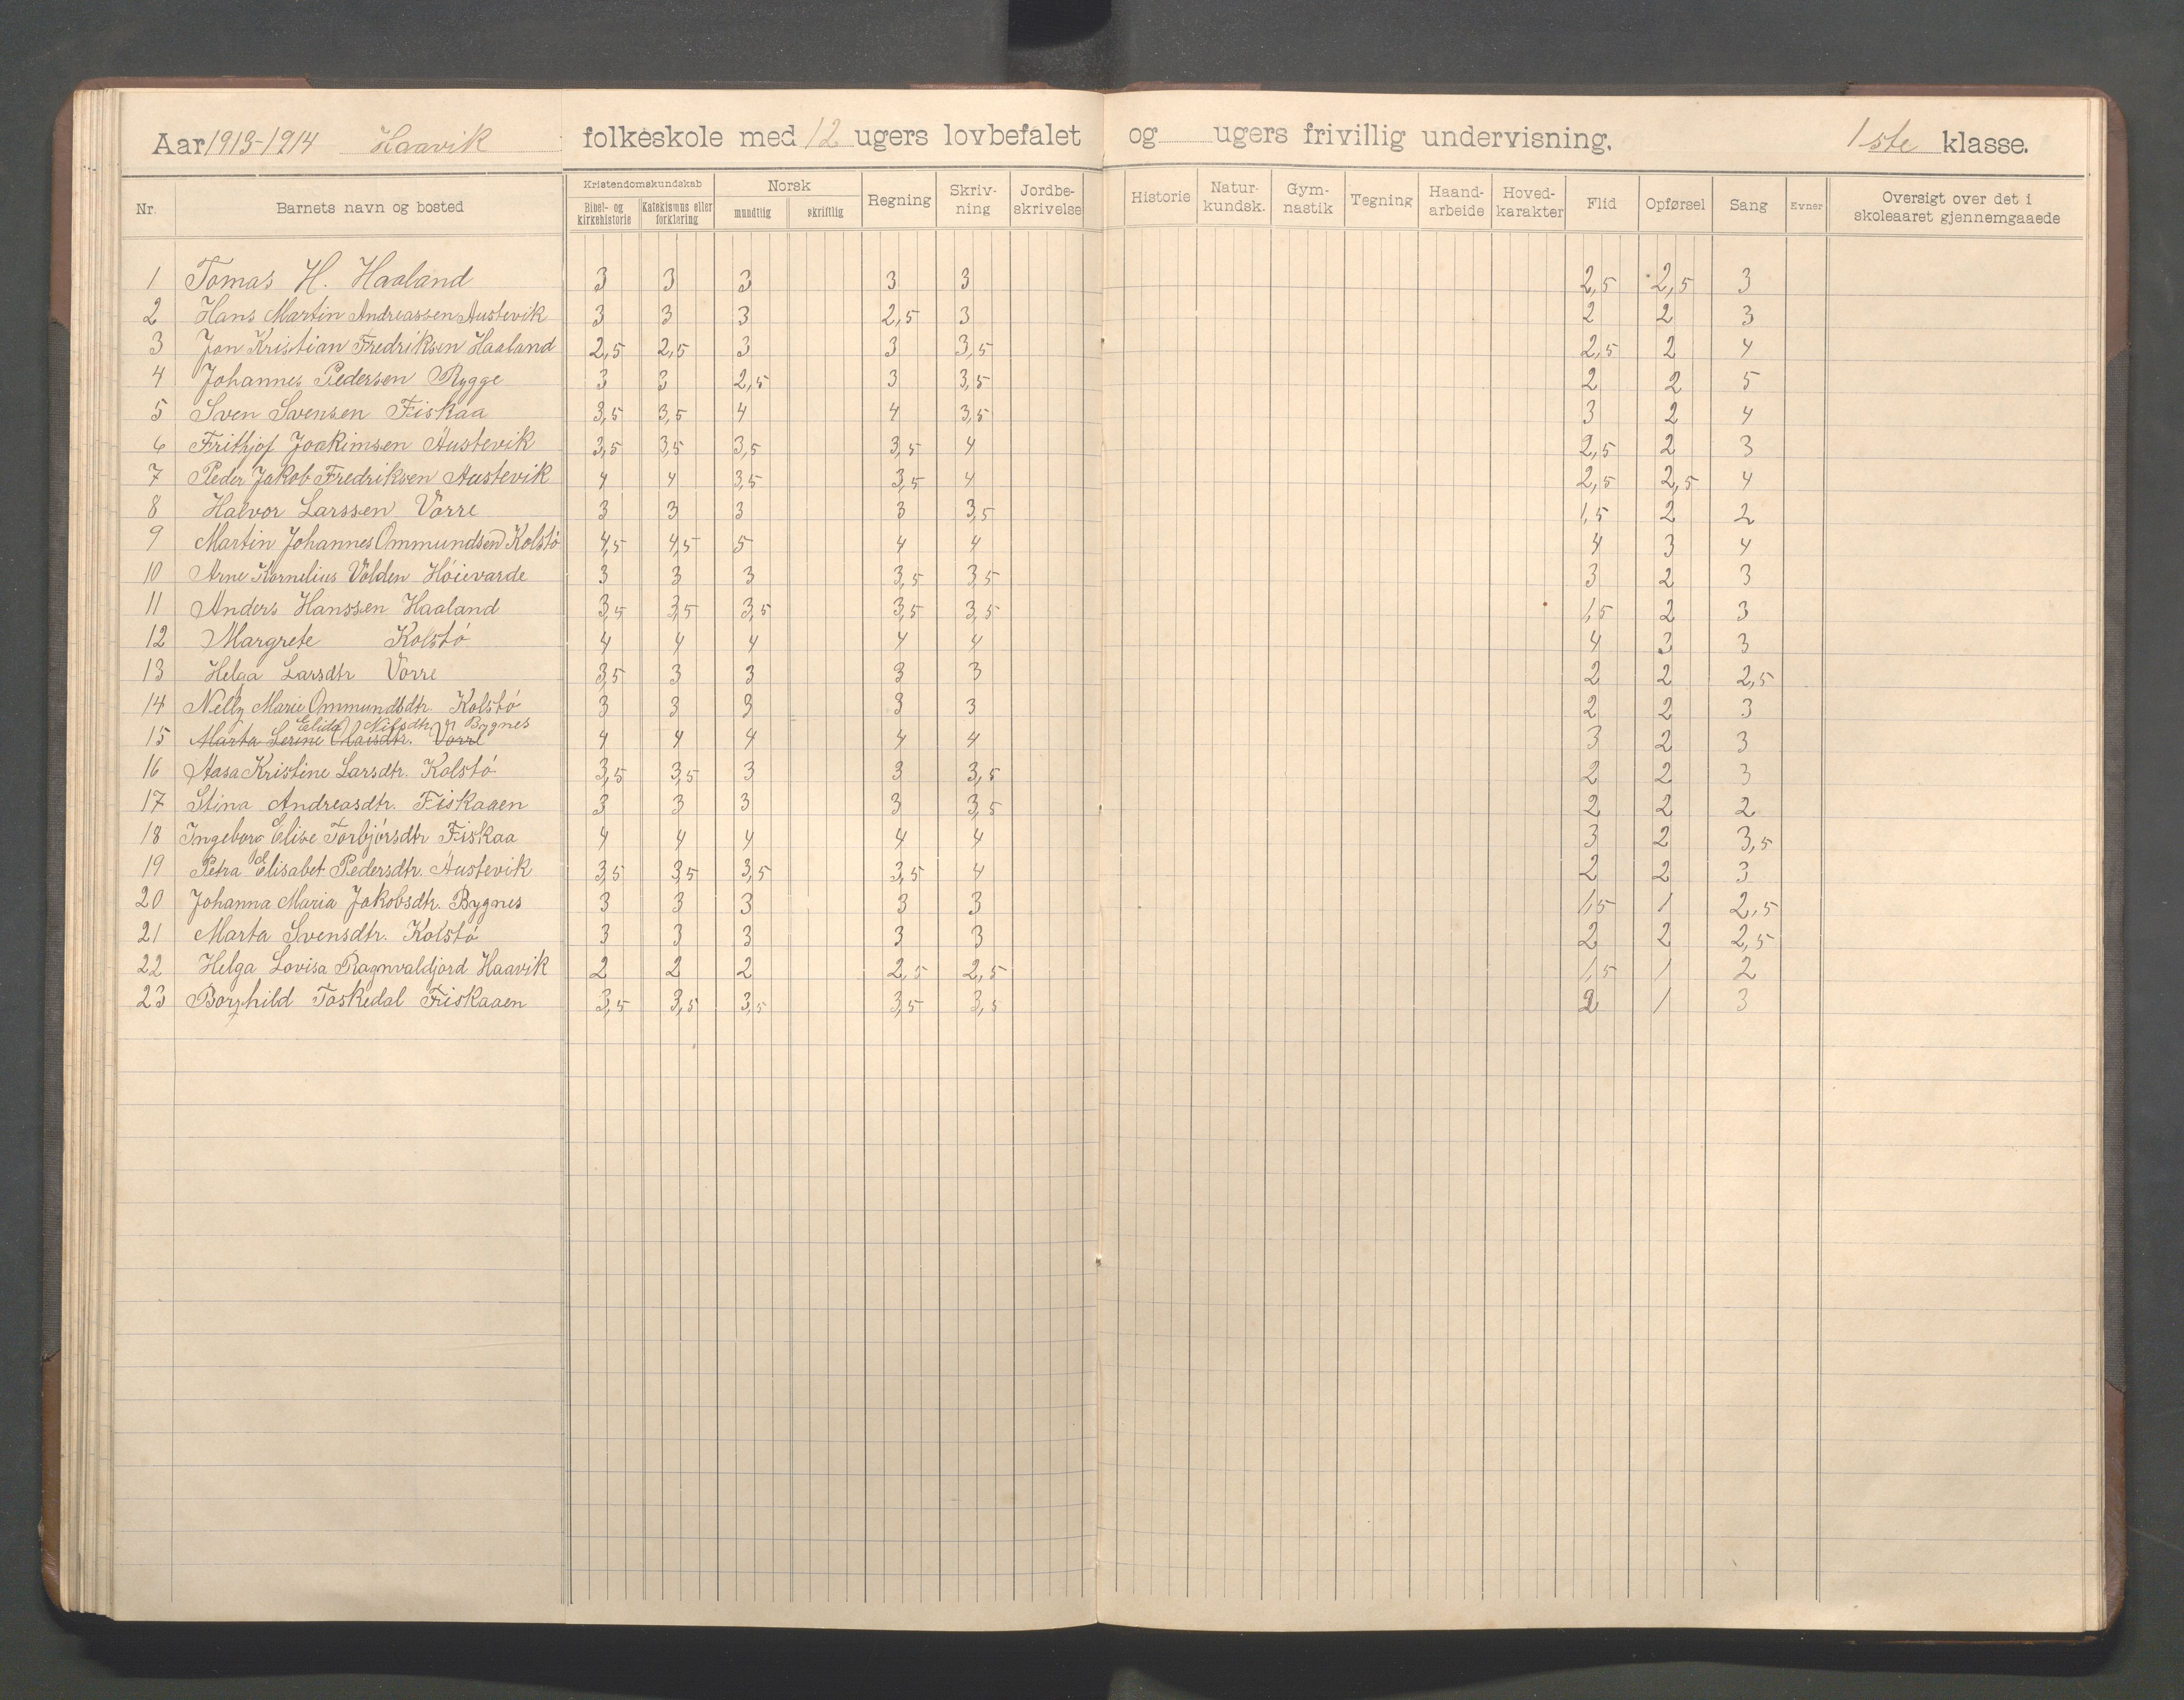 Aar 1913-1914 Haavik folkeskole med 12 ugers lovbefalet og ugers frivillig undervisning. 1ste klasse.
Nr. Barnets navn og bosted Kristendomskundskab Bibel- og kirkehistorie Katekismus eller forklaring Norsk mundtlig skriftlig Regning Skriv-ning Jordbe-skrivelse Historie Natur-kundsk. Gym-nastik Tegning Haand-arbeide Hoved-karakter Flid Opførsel Sang Evner Oversigt over det i skoleaaret gjennemgaaede
1 Tomas H. Haaland 3 3 3 3 3 2,5 2,5 3
2 Hans Martin Andreassen Austevik 3 3 3 2,5 3 2 2 3
3 Jon Kristian Fredriksen Haaland 2,5 2,5 3 3 3,5 2,5 2 4
4 Johannes Pedersen Rygge 3 3 2,5 3 3,5 2 2 5
5 Sven Svensen Fiskaa 3,5 3,5 4 4 3,5 3 2 4
6 Frithjof Joakimsen Austevik 3,5 3,5 3,5 3,5 4 2,5 2 3
7 Peder Jakob Fredriksen Austevik 4 4 3,5 3,5 4 2,5 2,5 4
8 Halvor Larssen Vorre 3 3 3 3 3,5 1,5 2 2
9 Martin Johannes Ommundsen Kolstø 4,5 4,5 5 4 4 4 3 4
10 Arne Kornelius Volden Høievarde 3 3 3 3,5 3,5 3 2 3
11 Anders Hanssen Haaland 3,5 3,5 3,5 3,5 3,5 1,5 2 3
12 Margrete Kolstø 4 4 4 4 4 4 3 3
13 Helga Larsdtr Vorre 3,5 3 3 3 3 2 2 2,5
14 Nelly Marie Ommundsdtr. Kolstø 3 3 3 3 3 2 2 3
Elida Nilsdtr. Bygnes
15 Marta Serine Olaisdtr. Vorre 4 4 4 4 4 3 2 3
16 Aasa Kristine Larsdtr. Kolstø 3,5 3,5 3 3 3,5 2 2 3
17 Stina Andreasdtr. Fiskaaen 3 3 3 3 3,5 2 2 2
18 Ingeborg Elise Torbjørsdtr Fiskaa 4 4 4 4 4 3 2 3,5
19 Petra Elisabet Pedersdtr. Austevik 3,5 3,5 3,5 3,5 4 2 2 3
20 Johanna Maria Jakobsdtr. Bygnes 3 3 3 3 3 1,5 1 2,5
21 Marta Svensdtr. Kolstø 3 3 3 3 3 2 2 2,5
22 Helga Lovisa Ragnvaldjord Haavik 2 2 2 2,5 2,5 1,5 1 2
23 Borghild Taskedal Fiskaaen 3,5 3,5 3,5 3,5 3,5 2 1 3